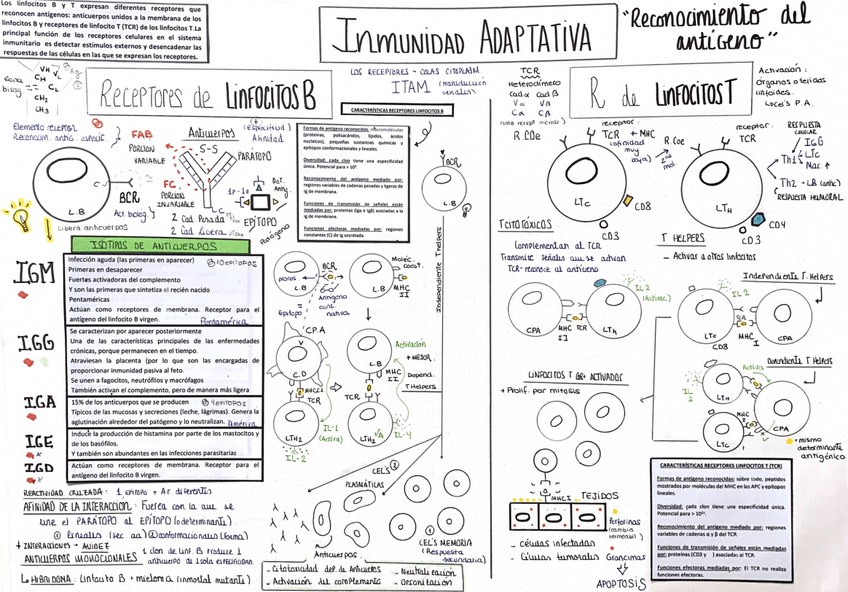 Los linfocitos B y T expresan diferentes receptores que
reconocen antígenos: anticuerpos unidos a la membrana de los
linfocitos B y receptores de linfocito T (TCR) de los linfocitos T. La
principal función de los receptores celulares en el sistema
inmunitario es detectar estímulos externos y desencadenar las
respuestas de las células en las que se expresan los receptores.
INMUNIDAD ADAPTATIVA
"Reconocimiento del
antígeno"
LOS RECEPTORES + COLAS CITOPLASM.
ITAM (transducción
señales)
Receptores de LINFOCITOS B
VH
VL
CH
CL
CH2
CH3
Elemento receptor
FAB
PORCION
VARIABLE
FC
PORCION
INVARIABLE
Act biolog.
Anticuerpos
S-S
(especificid.)
Afinidad
PARATOPO
EPÍTOPO
Patógeno
2 Cad Pesada
2 Cad Ligera
BCR
L.B
Libera anticuerpos
CARACTERÍSTICAS RECEPTORES LINFOCITOS B
Formas de antígeno reconocidas: macromoléculas
(proteínas, polisacáridos, lípidos, ácidos
nucleicos), pequeñas sustancias químicas y
epítopos conformacionales y lineales.
Diversidad: cada clon tiene una especificidad
única. Potencial para > 10⁹.
Reconocimiento del antígeno mediado por:
regiones variables de cadenas pesadas y ligeras de
Ig de membrana.
Funciones de transmisión de señales están
mediadas por: proteínas (Igα e Igβ) asociadas a la
Ig de membrana.
Funciones efectoras mediadas por: regiones
constantes (C) de Ig secretada.
BCR
L.B
Independiente T helpers
ISOTIPOS DE ANTICUERPOS
IGM
Infección aguda (las primeras en aparecer)
10 EPÍTOPOS
Primeras en desaparecer
Fuertes activadoras del complemento
Y son las primeras que sintetiza el recién nacido
Pentaméricas
Actúan como receptores de membrana. Receptor para el
antígeno del linfocito B virgen.
Pentamérica
IGG
Se caracterizan por aparecer posteriormente
Una de las características principales de las enfermedades
crónicas, porque permanecen en el tiempo.
Atraviesan la placenta (por lo que son las encargadas de
proporcionar inmunidad pasiva al feto.
Se unen a fagocitos, neutrófilos y macrófagos
También activan el complemento, pero de manera más ligera
IGA
15% de los anticuerpos que se producen
4 EPÍTOPOS
Típicos de las mucosas y secreciones (leche, lágrimas). Genera la
aglutinación alrededor del patógeno y lo neutralizan.
IGE
Induce la producción de histamina por parte de los mastocitos y
de los basófilos.
Y también son abundantes en las infecciones parasitarias
IGD
Actúan como receptores de membrana. Receptor para el
antígeno del linfocito B virgen.
BCR
L.B
Epítopo
Antígeno
conf.
nativa
Molec.
const.
L.B
MHC
II
CPA
C.D
MHC II
TCR
LTH2
IL-1
(Activa)
IL-2
Activación
+ MEJOR.
L.B
MHC
II
TCR
Depend.
T Helpers
LTH2
IL-4
REACTIVIDAD CRUZADA: 1 epítopo + Ac diferentes
AFINIDAD DE LA INTERACCIÓN: Fuerza con la que se
une el PARÁTOPO AL EPÍTOPO (determinante)
① Lineales (sec aa) ② conformacionales (forma)
+ INTERACCIONES → AVIDEZ
ANTICUERPOS MONOCLONALES 1 clon de linf. B produce 1
anticuerpo de 1 sola especificidad
HIBRIDOMA: Linfocito B + mieloma (inmortal mutante)
CEL'S
PLASMÁTICAS
Anticuerpos
CEL'S MEMORIA
(Respuesta
secundaria)
- Citotoxicidad dep. de Anticuerpos
- Activación del complemento
- Neutralización
- Opsonización
TCR
Heterodímero
Cad α Cad β
Vα Vβ
Cα Cβ
R de LINFOCITOS T
Activación:
órganos o tejidos
linfoides.
Local P.A.
R COe
receptor:
TCR + MHC
(afinidad
muy
baja)
LTc
CD8
CD3
R COe
receptor:
TCR
LTH
CD4
CD3
RESPUESTA
CELULAR
IGG
Th1
LTc
Mac. ↑
Th2 → LB (antic)
(RESPUESTA HUMORAL)
T CITOTÓXICOS
Complementan al TCR
Transmite señales que se activan
TCR-reconoce al antígeno
T HELPERS
- Activar a otros linfocitos
CPA
MHC
II
TCR
LTH
IL 2
(Activac)
Independiente T. Helpers
IL 2
LTc
CD8
MHC
I
CPA
Dependiente T Helpers
Activa
IL
2
LTH
MHC
I
LTc
CPA
* mismo
determinante
antigénico
LINFOCITOS T CD8+ ACTIVADOS
+ Prolif. por mitosis
MHC I
TEJIDOS
- células infectadas
- Células tumorales
Perforinas
(cambia
permeabil)
Granzimas
APOPTOSIS
CARACTERÍSTICAS RECEPTORES LINFOCITOS T (TCR)
Formas de antígeno reconocidas: sobre todo, péptidos
mostrados por moléculas del MHC en las APC y epítopos
lineales.
Diversidad: cada clon tiene una especificidad única.
Potencial para > 10¹¹.
Reconocimiento del antígeno mediado por: regiones
variables de cadenas α y β del TCR.
Funciones de transmisión de señales están mediadas
por: proteínas (CD3 y ) asociadas al TCR.
Funciones efectoras mediadas por: El TCR no realiza
funciones efectoras.